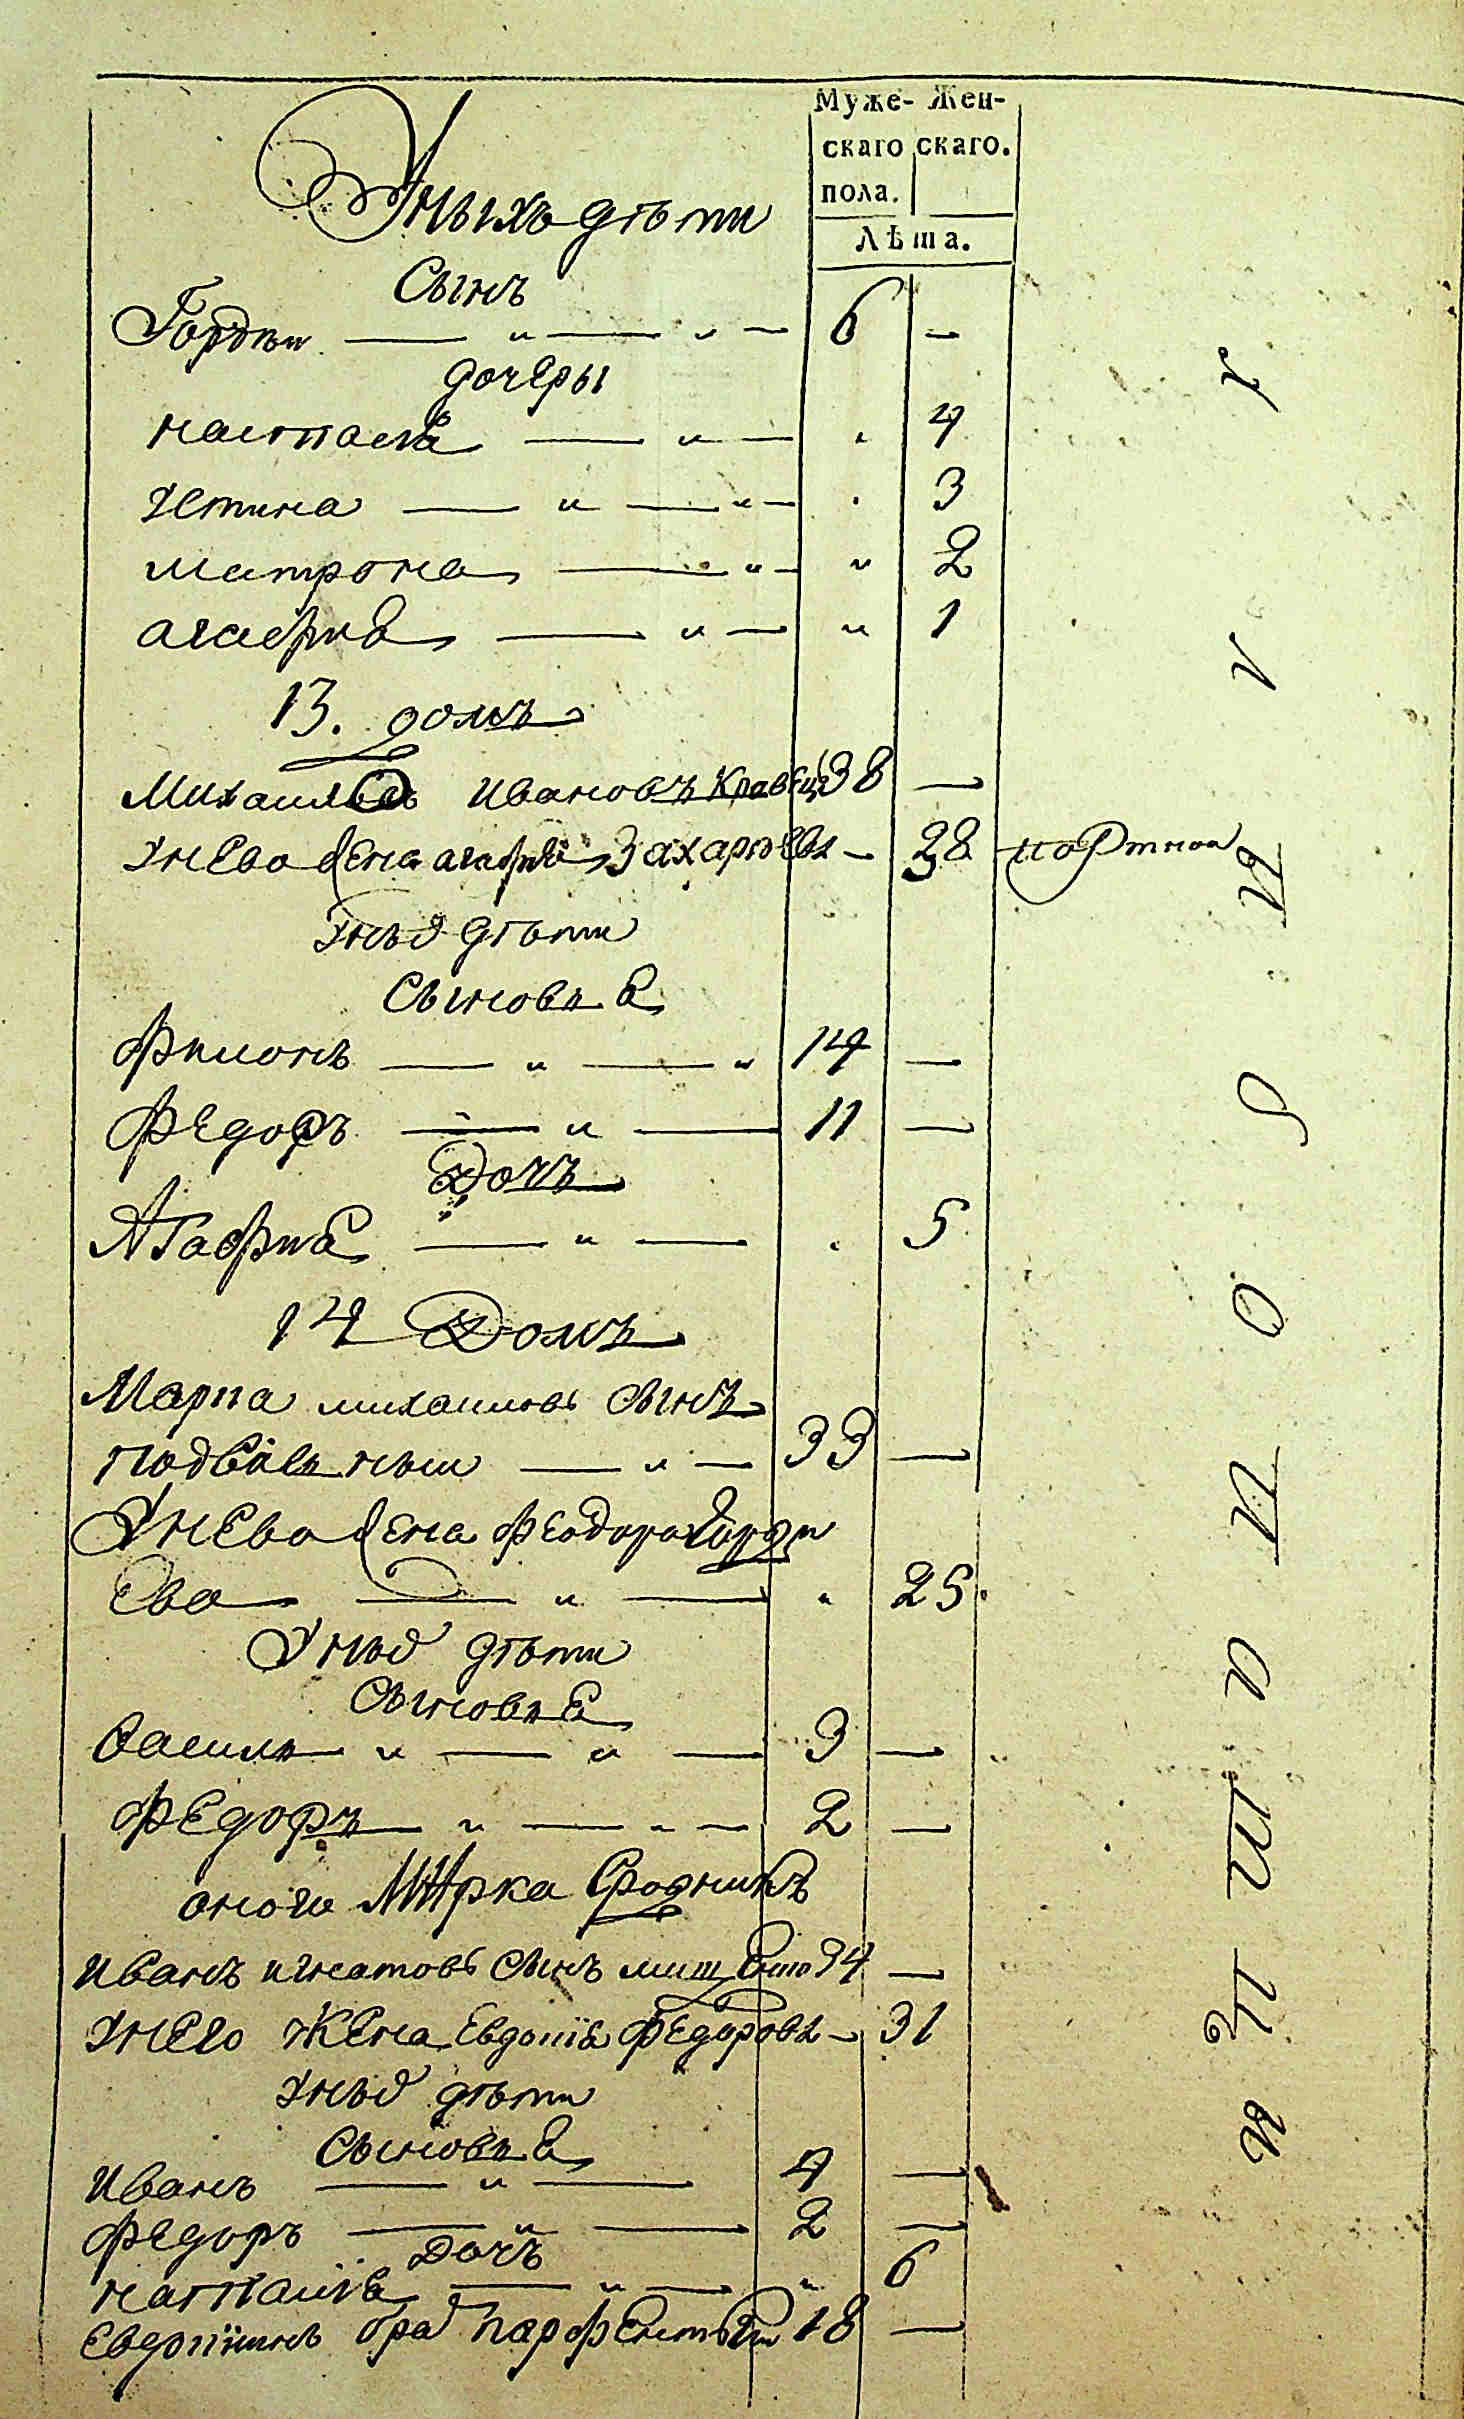 Муже- Жен-
скаго скаго.
пола.
Лѣта.
У ныхъ дѣти
Сынъ
Гордѣи 6 —
дочеры
настасия 4
Устина 3
матрона 2
агафия 1
13. домъ
Михаилъ Ивановъ Кравецъ 38 —
У нево жена агафия Захарьева — 38 портной
У ныхъ дѣти
Сыновья
Филонъ 14 —
Федоръ 11 —
Дочъ
Агафия 5
14 Домъ
Марка михаиловъ сынъ
33 —
У нево жена Феодора
Ева 25
У ныхъ дѣти
Сыновья
Василь 3 —
Федоръ 2 —
оного Марка Сродникъ
Иванъ игнатовъ сынъ 34 —
У него жена Евдокия Федорова — 31
У ныхъ дѣти
Сыновья
Иванъ 4 —
Федоръ 2 —
Дочъ
настасия 6
Евдокиинъ брат парфентий 18 —